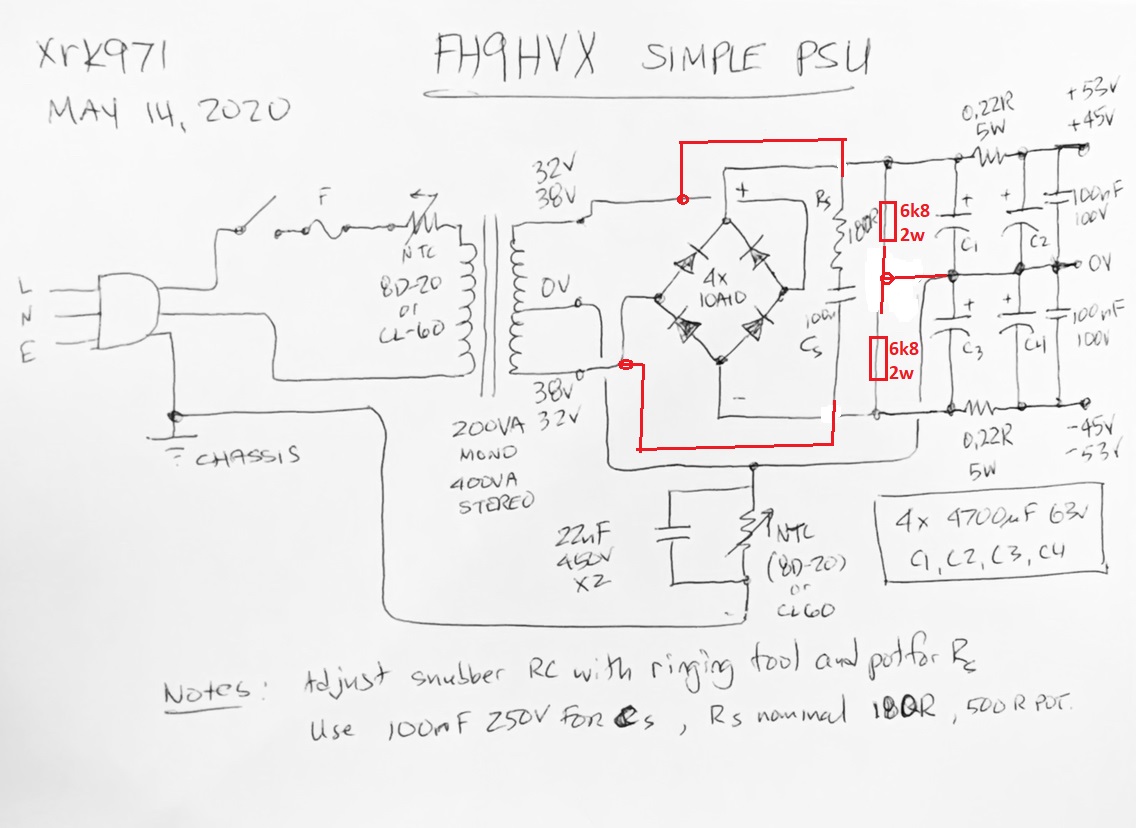 XrK971
FH9HVX SIMPLE PSU
MAY 14, 2020
32V
38V
0,22R
5W
+53V
+45V
F
NTC
8D-20
or
CL-60
0V
4x
10A10
+
Rs
180R
6k8
2w
+
C1
+
C2
100nF
100V
0V
L
N
E
100n
Cs
6k8
2w
+
C3
+
C4
100nF
100V
38V
32V
-
200VA
MONO
400VA
STEREO
0,22R
5W
-45V
-53V
CHASSIS
22nF
450V
X2
NTC
(8D-20)
or
CL60
4x 4700uF 63V
C1, C2, C3, C4
Notes: Adjust snubber RC with ringing tool and pot for Rs
Use 100nF 250V for Cs, Rs nominal 180R, 500R POT.